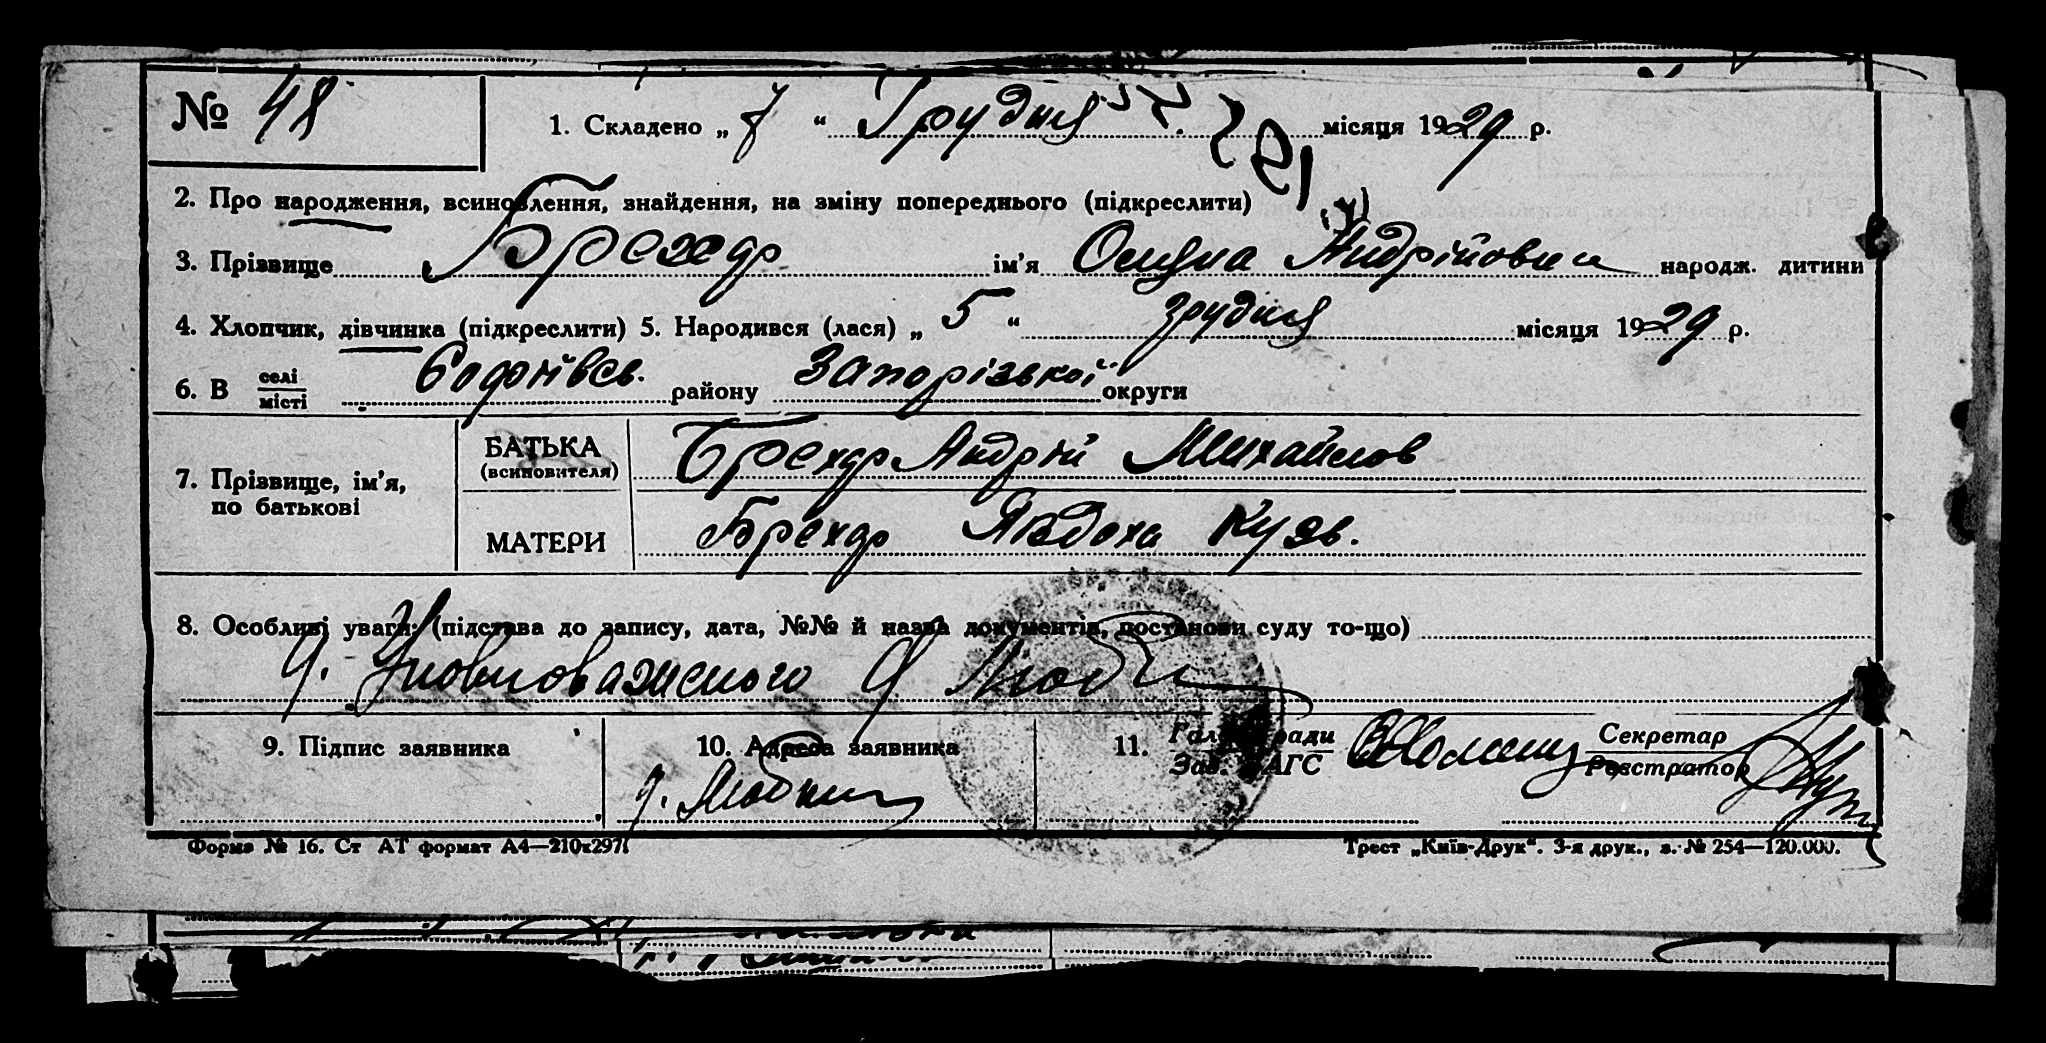 № 48
1. Складено „ 7 “ Грудня місяця 1929 р.
2. Про народження, всиновлення, знайдення, на зміну попереднього (підкреслити)
3. Прізвище Брехар ім'я Андрійовна народж. дитини
4. Хлопчик, дівчинка (підкреслити) 5. Народився (лася) „ 5 “ грудня місяця 1929 р.
6. В селі місті Софиївсь. району Запорізької округи
7. Прізвище, ім'я, по батькові
БАТЬКА (всиновителя) Брехар Андрій Михайлов
МАТЕРИ Брехар Явдоха Кузь.
8. Особливі уваги: (підстава до запису, дата, №№ й назва документів, постанови суду то-що)
9. Підпис заявника
10. Адреса заявника
11. Гол. ради Зав. ЗАГС
Секретар Реєстратор
Форма № 16. Ст АТ формат А4—210x297
Трест „Київ-Друк“. 3-я друк., з. № 254—120.000.